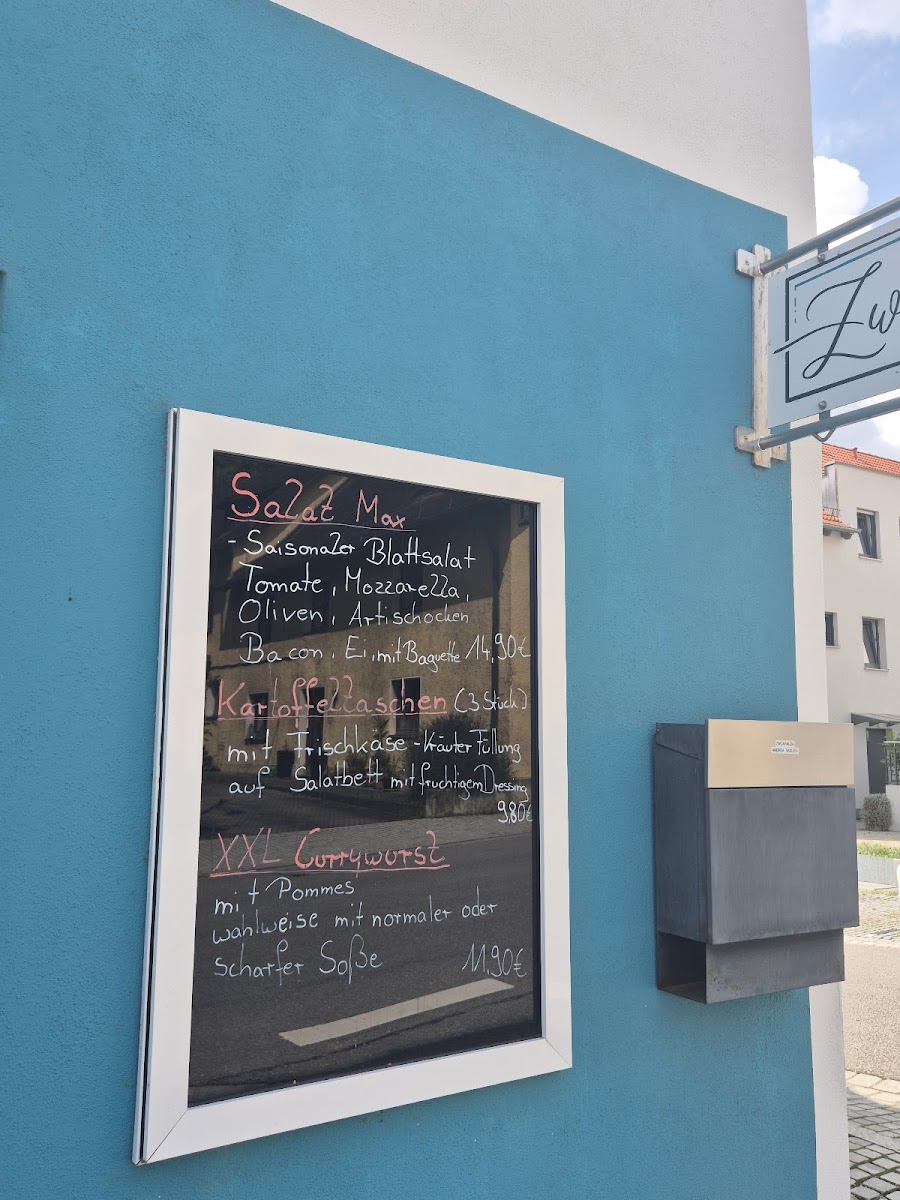 Salat Max
- Saisonaler Blattsalat
Tomate, Mozzarella,
Oliven, Artischocken
Bacon, Ei, mit Baguette 14,90€
Kartoffeltaschen (3 Stück)
mit Frischkäse-Kräuter Füllung
auf Salatbett mit fruchtigem Dressing
9,80€
XXL Currywurst
mit Pommes
wahlweise mit normaler oder
scharfer Soße 11,90€
Zw